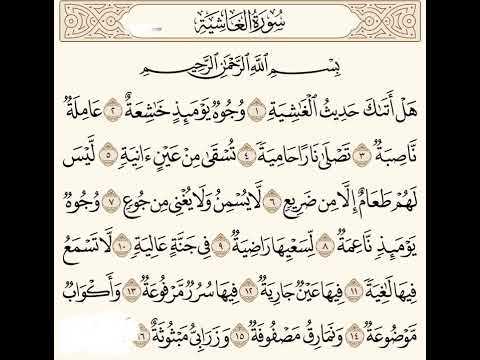 سُورَةُ الغَاشِيَةِ
بِسْمِ ٱللَّهِ ٱلرَّحْمَٰنِ ٱلرَّحِيمِ
هَلْ أَتَىٰكَ حَدِيثُ ٱلْغَٰشِيَةِ ١ وُجُوهٌ يَوْمَئِذٍ خَٰشِعَةٌ ٢ عَامِلَةٌ
نَّاصِبَةٌ ٣ تَصْلَىٰ نَارًا حَامِيَةً ٤ تُسْقَىٰ مِنْ عَيْنٍ ءَانِيَةٍ ٥ لَّيْسَ
لَهُمْ طَعَامٌ إِلَّا مِن ضَرِيعٍ ٦ لَّا يُسْمِنُ وَلَا يُغْنِى مِن جُوعٍ ٧ وُجُوهٌ
يَوْمَئِذٍ نَّاعِمَةٌ ٨ لِّسَعْيِهَا رَاضِيَةٌ ٩ فِى جَنَّةٍ عَالِيَةٍ ١٠ لَّا تَسْمَعُ
فِيهَا لَٰغِيَةً ١١ فِيهَا عَيْنٌ جَارِيَةٌ ١٢ فِيهَا سُرُرٌ مَّرْفُوعَةٌ ١٣ وَأَكْوَابٌ
مَّوْضُوعَةٌ ١٤ وَنَمَارِقُ مَصْفُوفَةٌ ١٥ وَزَرَابِىُّ مَبْثُوثَةٌ ١٦